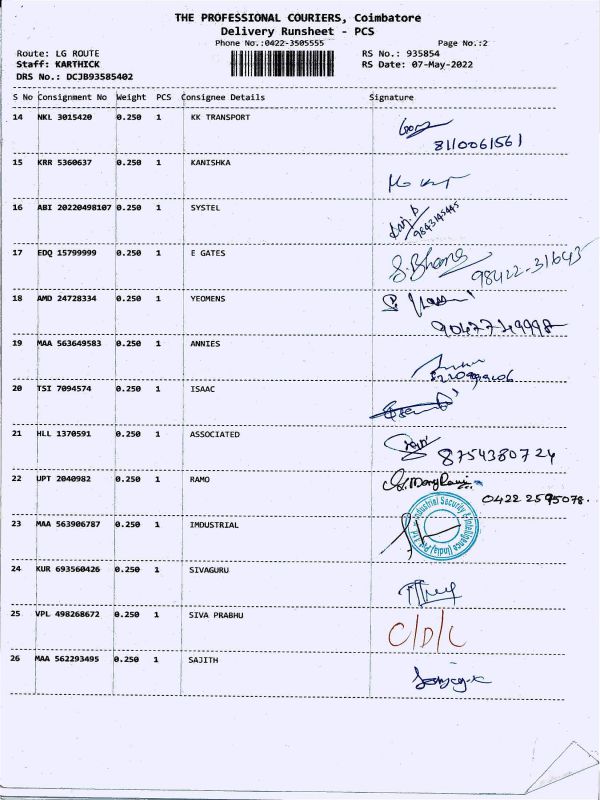 THE PROFESSIONAL COURIERS, Coimbatore
Delivery Runsheet - PCS
Phone No.:0422-3505555 Page No.:2
Route: LG ROUTE RS No.: 935854
Staff: KARTHICK RS Date: 07-May-2022
DRS No.: DCJB93585402
S No Consignment No Weight PCS Consignee Details Signature
14 NKL 3015420 0.250 1 KK TRANSPORT
8110061561
15 KRR 5360637 0.250 1 KANISHKA
16 ABI 20220498107 0.250 1 SYSTEL
9843145445
17 EDQ 15799999 0.250 1 E GATES
98422-31643
18 AMD 24728334 0.250 1 YEOMENS
9047749998
19 MAA 563649583 0.250 1 ANNIES
20 TSI 7094574 0.250 1 ISAAC
21 HLL 1370591 0.250 1 ASSOCIATED
8754380724
22 UPT 2040982 0.250 1 RAMO
0422 2595078.
23 MAA 563906787 0.250 1 IMDUSTRIAL
Industrial Security & Intelligence (India) Pvt Ltd
24 KUR 693560426 0.250 1 SIVAGURU
25 VPL 498268672 0.250 1 SIVA PRABHU
C/D/L
26 MAA 562293495 0.250 1 SAJITH